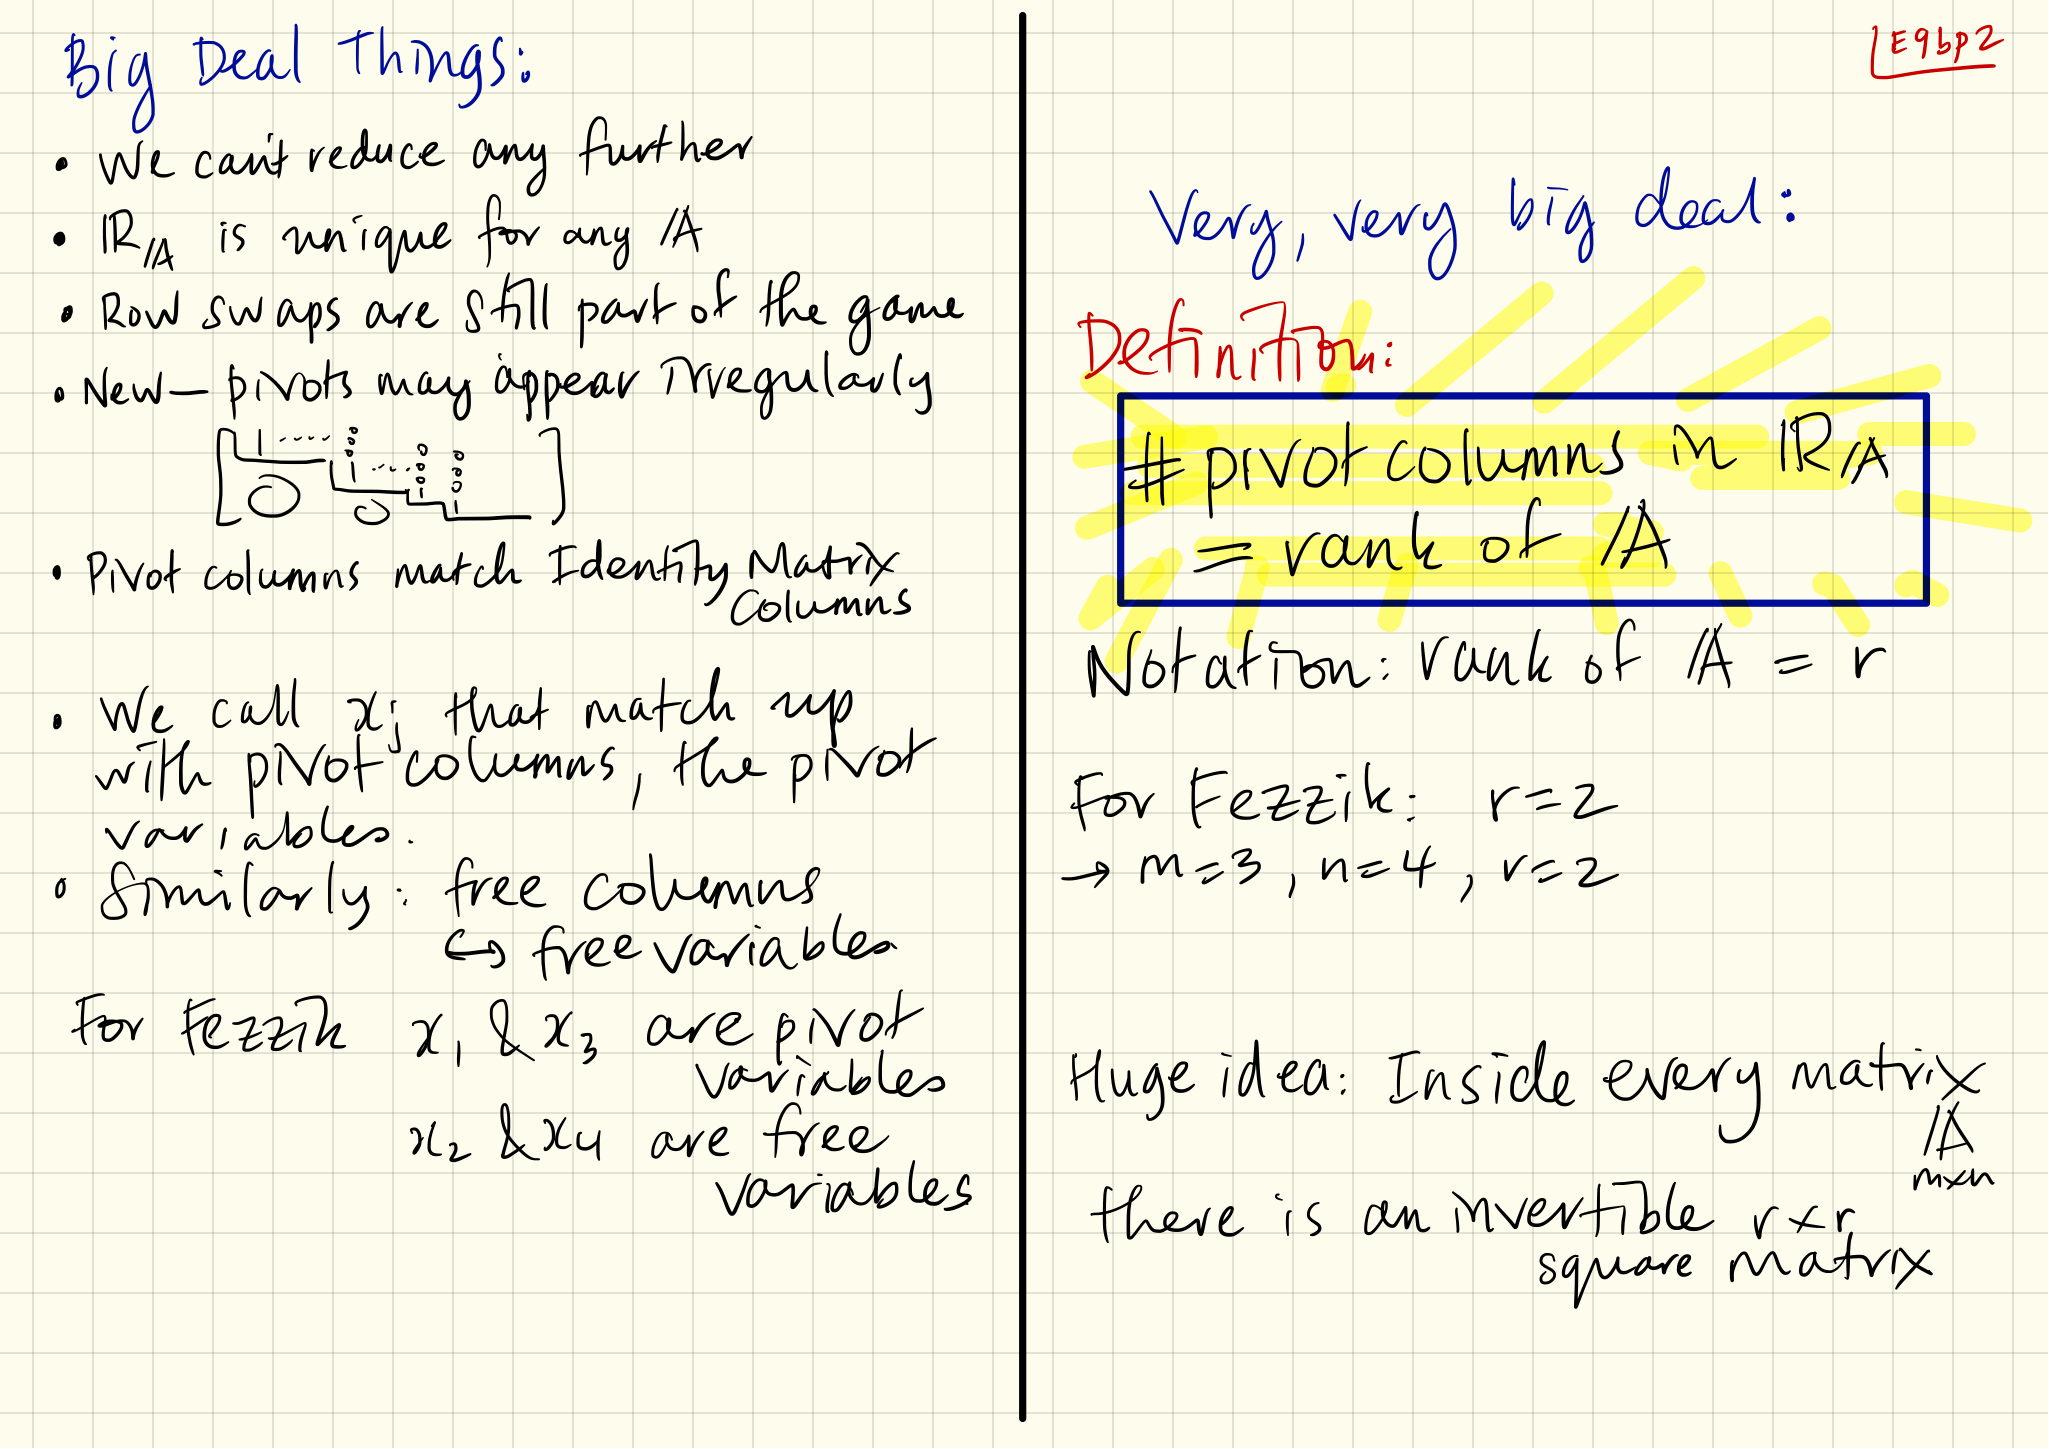 Big Deal Things:
• We can't reduce any further
• ℝ_𝔸 is unique for any 𝔸
• Row swaps are still part of the game
• New — pivots may appear irregularly
[ 1 .... 0 0 0 1 .... 0 0 0 1 0 0 0 1 0 0 ]
• Pivot columns match Identity Matrix
Columns
• We call xj that match up
with pivot columns, the pivot
variables.
• Similarly: free columns
↔ free variables
For Fezzik x₁ & x₃ are pivot
variables
x₂ & x₄ are free
variables
E9bp2
Very, very big deal:
Definition:
# pivot columns in ℝ_𝔸
= rank of 𝔸
Notation: rank of 𝔸 = r
For Fezzik: r=2
→ m=3, n=4, r=2
Huge idea: Inside every matrix
𝔸
mxn
there is an invertible r×r
square matrix